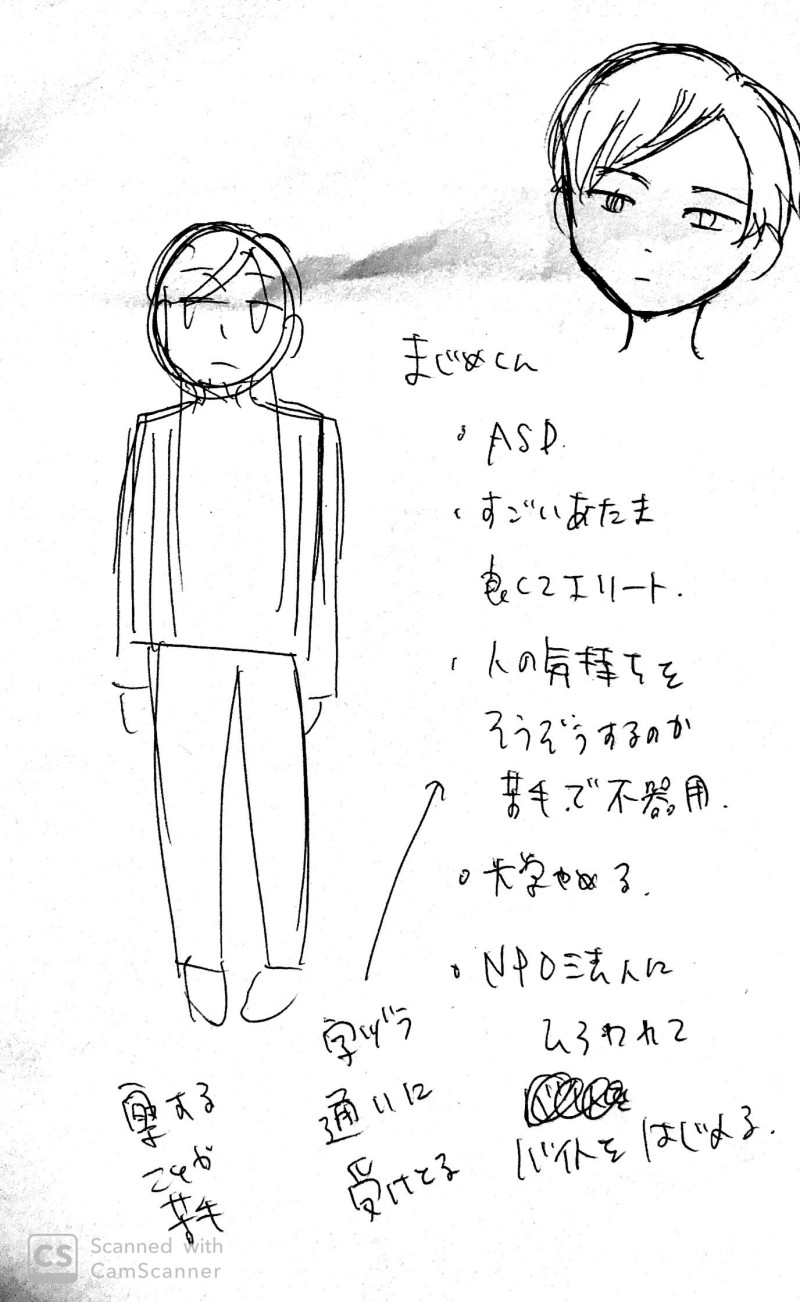 まじめくん
・ASD.
・すごいあたま
良くてエリート.
・人の気持ちを
そうぞうするのが
苦手で不器用.
・大学やめる.
・NPO法人に
ひろわれて
バイトをはじめる.
字づら
通りに
受けとる
することが
苦手
CS Scanned with
CamScanner